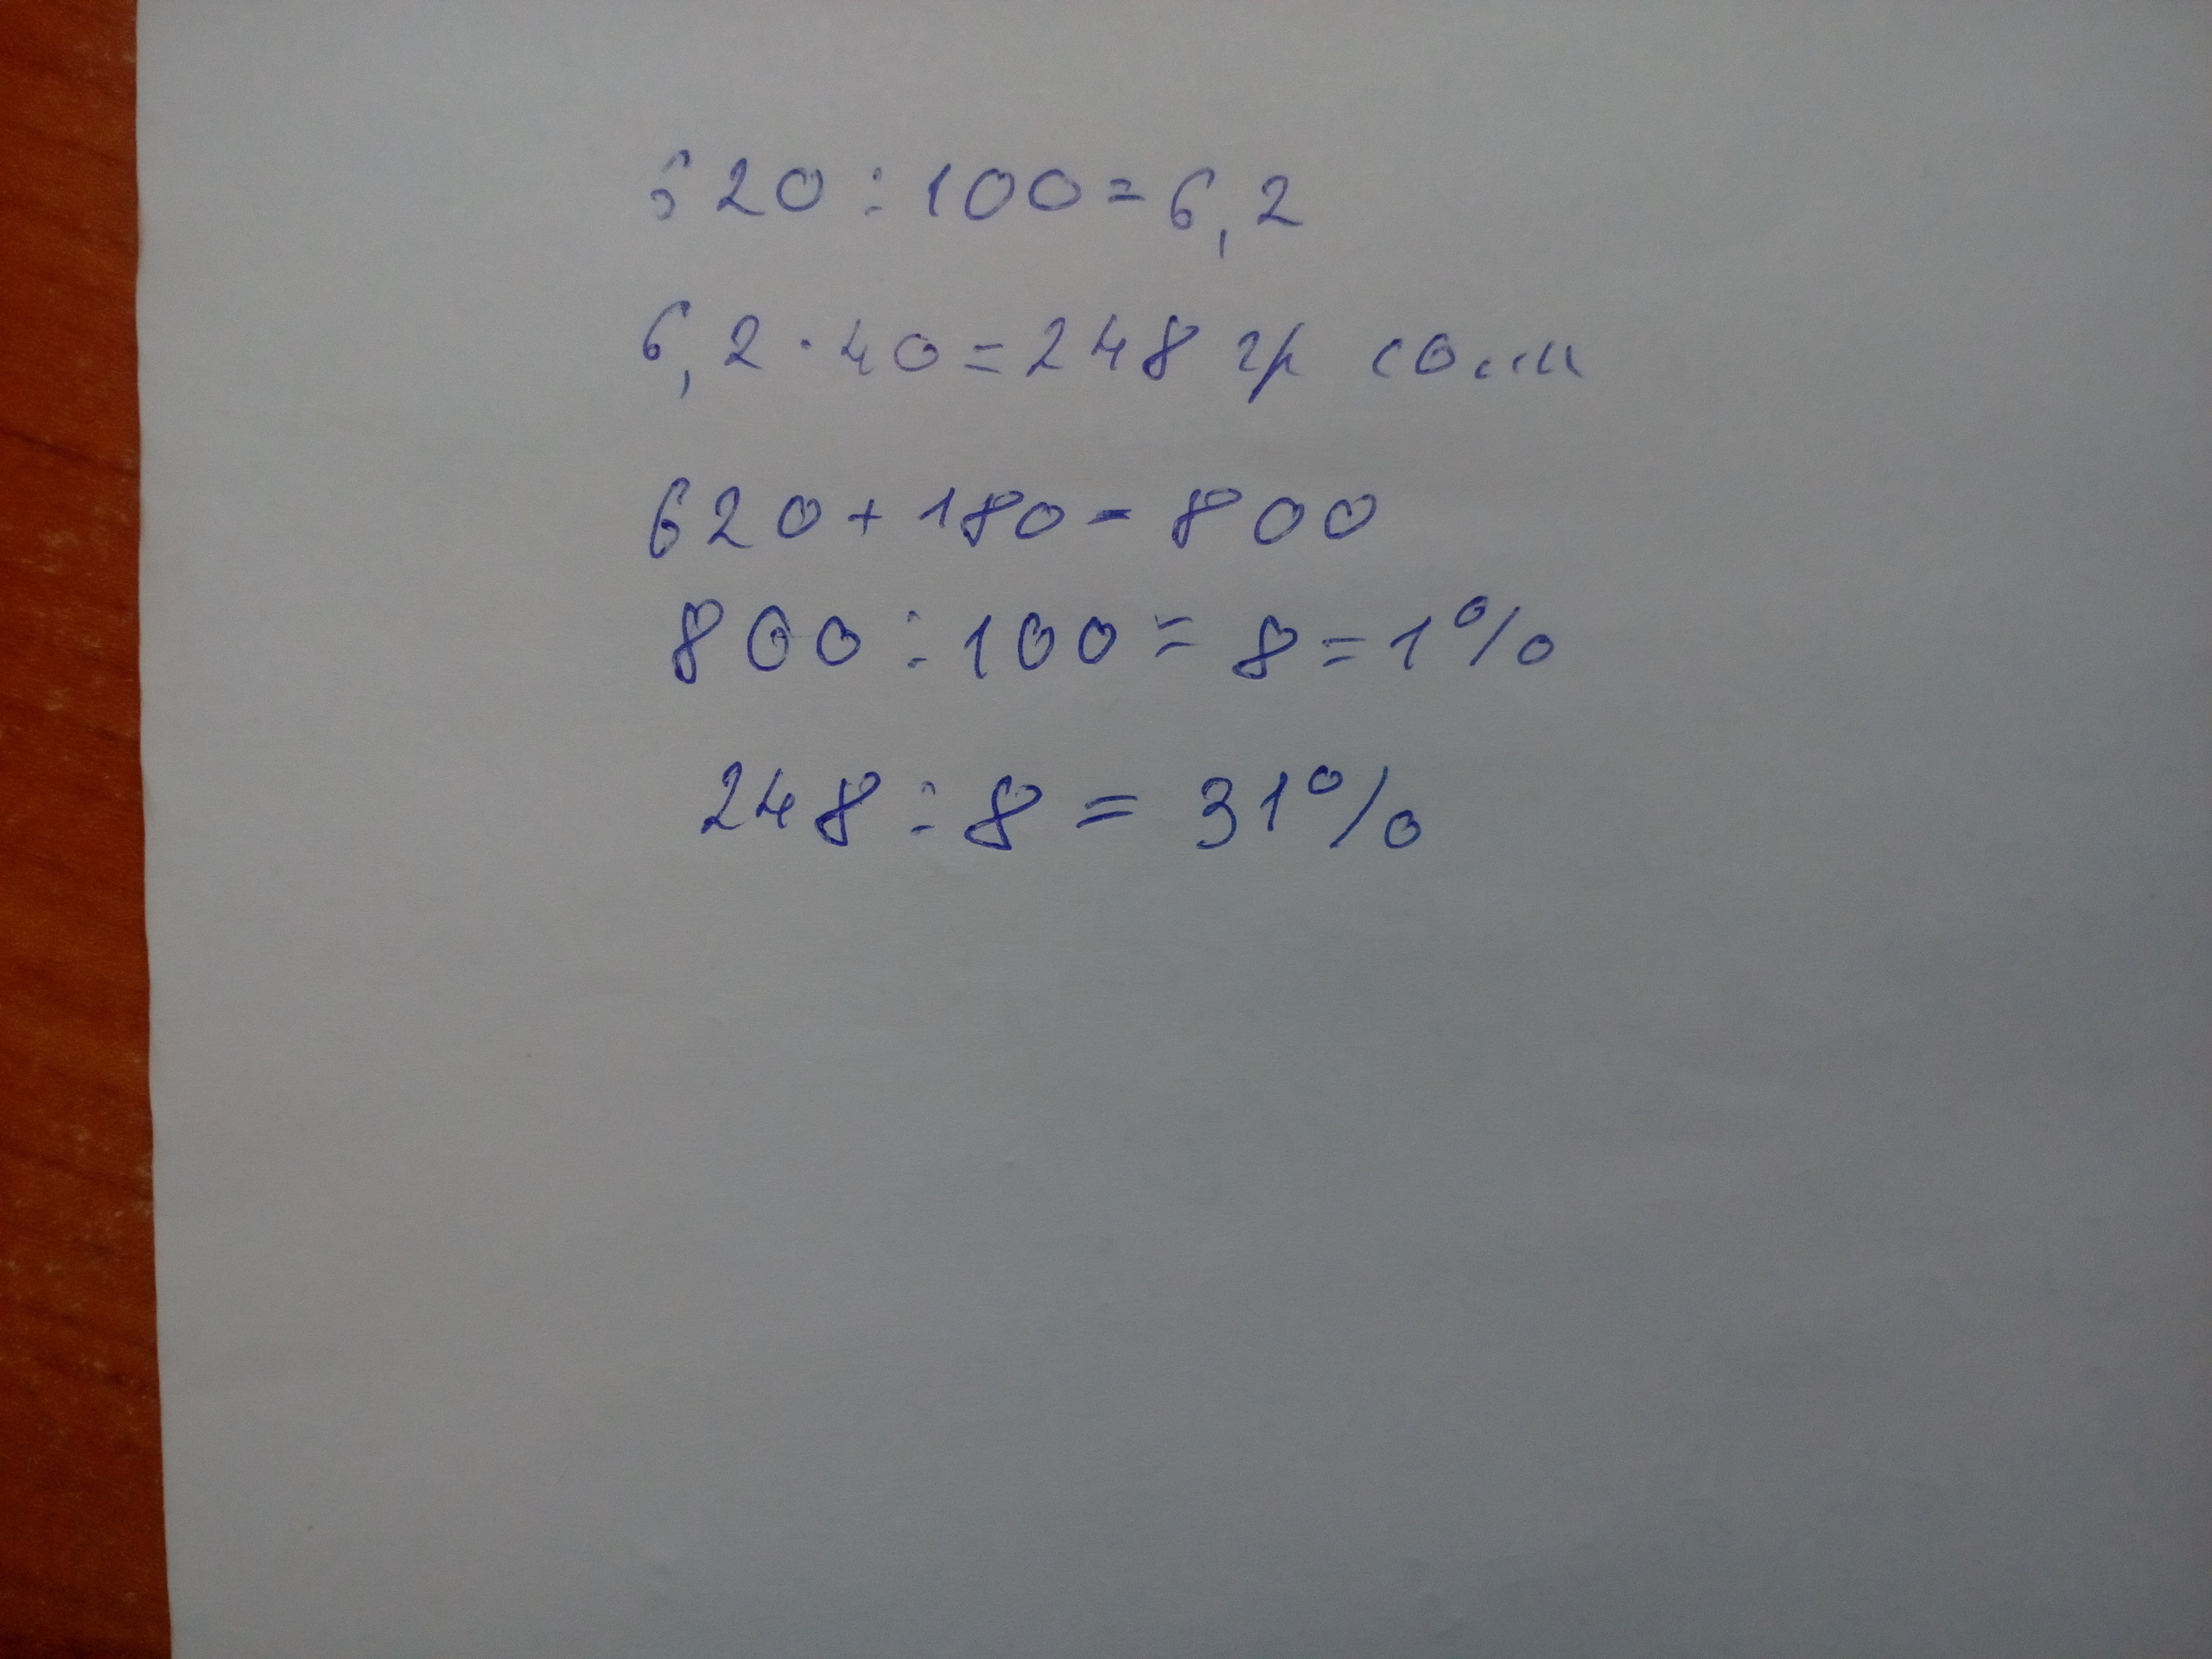 620 : 100 = 6,2
6,2 · 40 = 248 гр соли
620 + 180 = 800
800 : 100 = 8 = 1%
248 : 8 = 31%